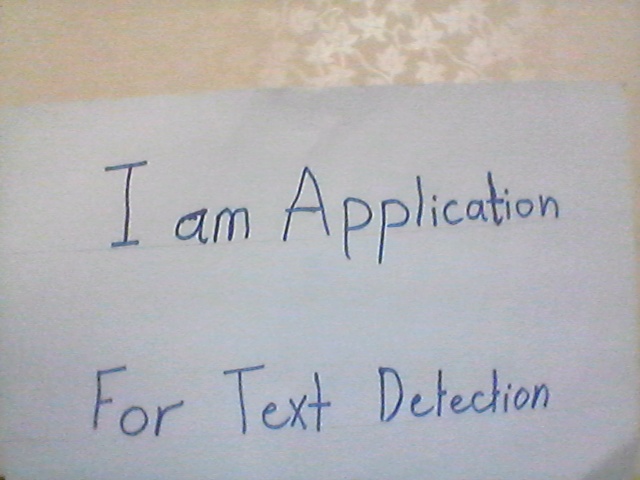 I am Application
For Text Detection